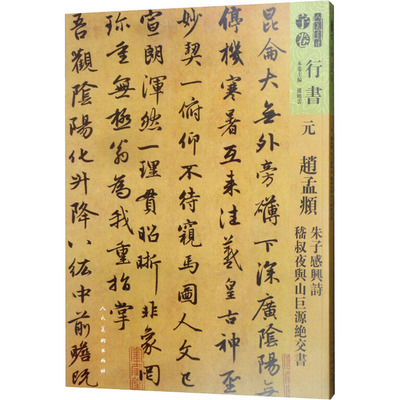 子卷
本卷主編
行書
元
趙孟頫
朱子感興詩
嵇叔夜與山巨源絕交書
昆侖大無外旁礴下深廣陰陽無
停機寒暑互來往羲皇古神聖
妙契一俯仰不待窺馬圖人文已
宣朗渾然一理貫昭晰非象罔
珍重無極翁為我重指掌
吾觀陰陽化升降八紘中前瞻既
人民美術出版社